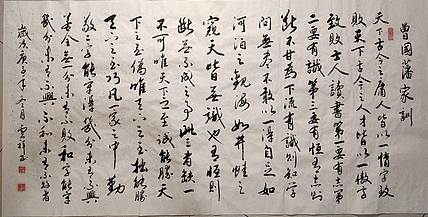 曾國藩家訓
天下古今之庸人皆以一惰字致
敗天下古今之人才皆以一傲字
致敗士人讀書第一要有志第
二要有識第三要有恒有志則
斷不甘為下流有識則知學
問無盡不敢以一得自足如
河泊之觀海如井蛙之
窺天皆無識也有恒則
斷無不成之事此三者缺一
不可唯天下之至誠能勝天
下之至偽唯天下之至拙能勝
天下之至巧凡一家之中勤
敬二字能守得幾分未有不興
若全無一分未有不敗和字能守
幾分未有不興不和未有不敗者
歲次庚子年月雲祥書